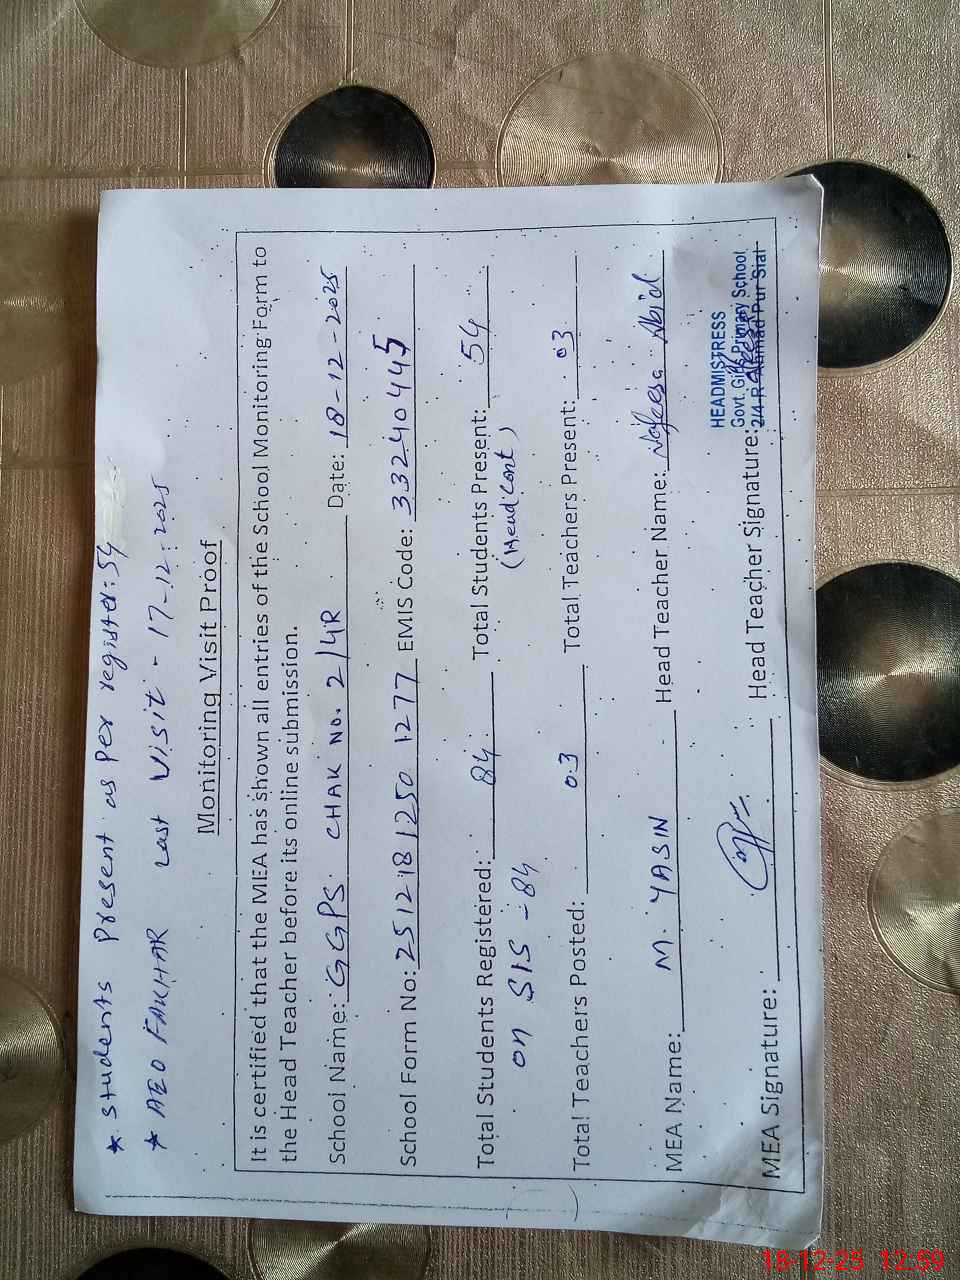 * Students Present as per register: 54
* AEO FAKHAR Last Visit - 17-12-2025
Monitoring Visit Proof
It is certified that the MEA has shown all entries of the School Monitoring Form to
the Head Teacher before its online submission.
School Name: GGPS CHAK No. 2/4R Date: 18-12-2025
School Form No: 251218 1250 1277 EMIS Code: 33240445
Total Students Registered: 84 Total Students Present: 54
on SIS - 84 (Head Cont)
Total Teachers Posted: 03 Total Teachers Present: 03
MEA Name: M. YASIN Head Teacher Name: Nafeesa Abid
HEADMISTRESS
Govt. Girls Primary School
2/4-R Ahmad Pur Sial
MEA Signature: Head Teacher Signature:
18-12-25 12:59